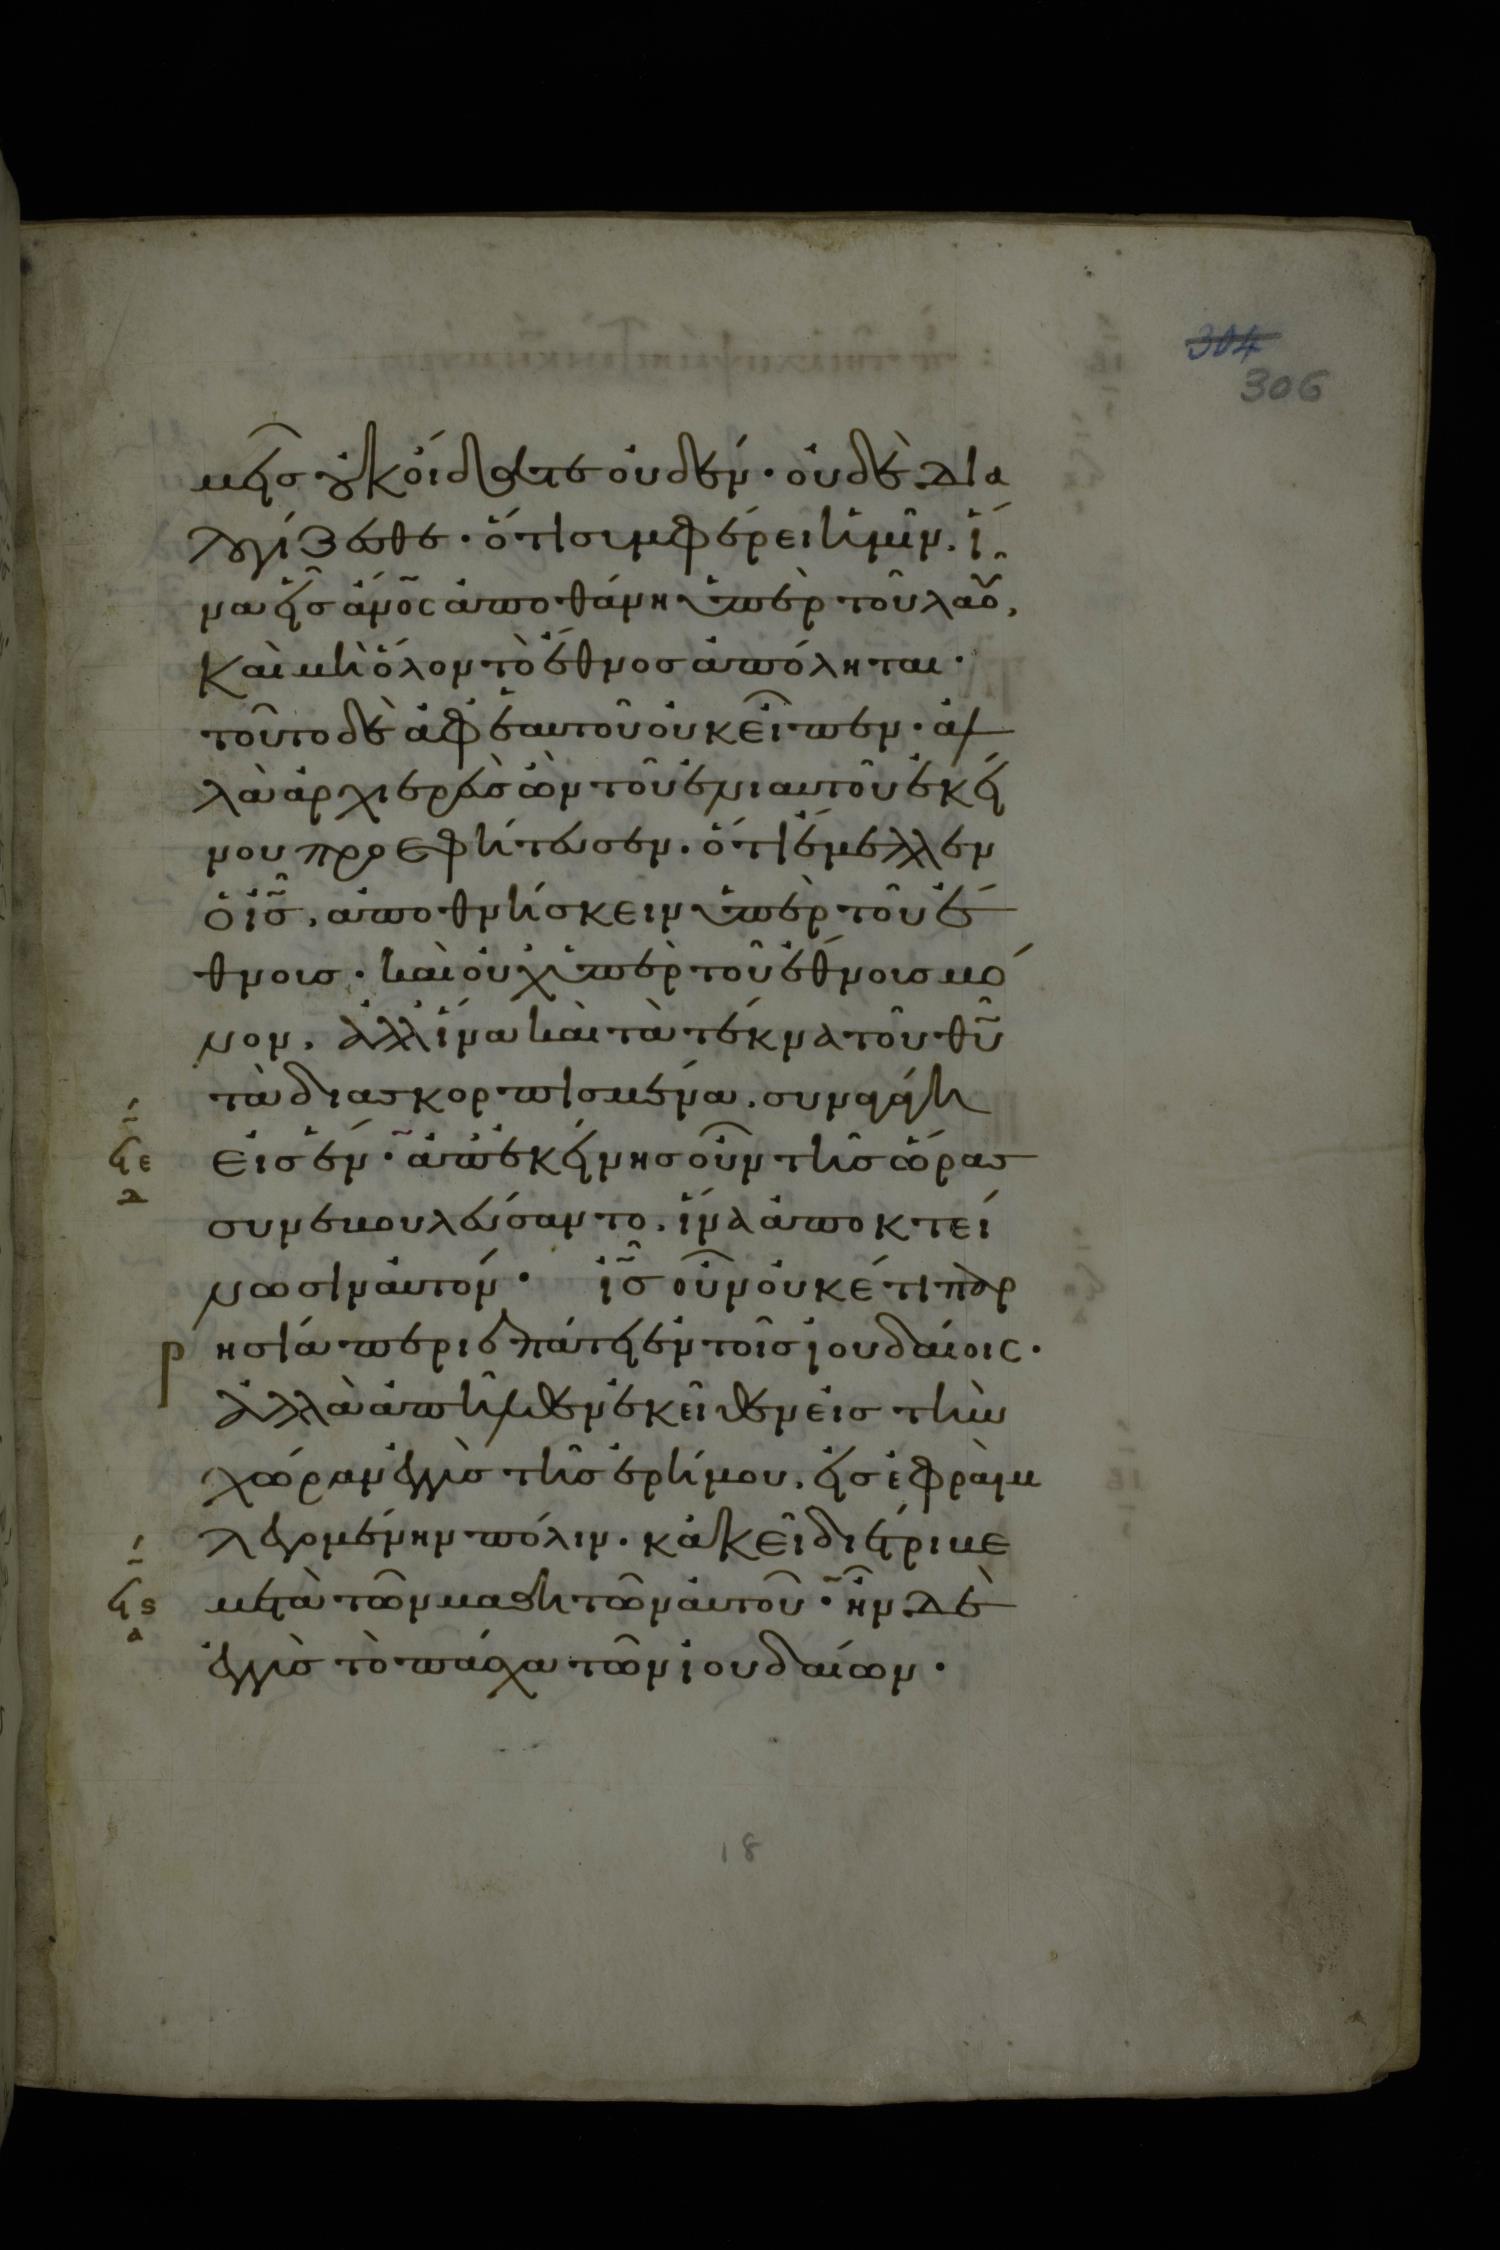 304
306
μεῖσ οὐκ οἴδατε οὐδέν· οὐδὲ δια
λογίζεσθε· ὅτι συμφέρει ἡμῖν, ἵ
να εἷσ ἄν̅ο̅ς ἀποθάνη ὑπὲρ τοῦ λαοῦ,
καὶ μὴ ὅλον τὸ ἔθνοσ ἀπόληται·
τοῦτο δὲ ἀφ ἑαυτοῦ οὐκ εἶπεν· ἀλ
λὰ ἀρχιερεὺσ ὢν τοῦ ἐνιαυτοῦ ἐκεί
νου προεφήτευσεν· ὅτι ἔμελλεν
ὁ ι̅σ̅, ἀποθνήσκειν ὑπὲρ τοῦ ἔ
θνουσ· καὶ οὐχ ὑπὲρ τοῦ ἔθνουσ μό
νον, ἀλλ ἵνα καὶ τὰ τέκνα τοῦ θ̅υ̅
τὰ διασκορπισμένα, συναγάγη
εἰσ ἕν· ἀπ ἐκείνησ οὖν τῆσ ὥρασ
συνεβουλεύσαντο, ἵνα ἀποκτεί
νωσιν αὐτόν· ι̅σ̅ οὖν οὐκέτι παρ
ρησία περιεπάτει ἐν τοῖσ ἰουδαίοις·
ἀλλὰ ἀπῆλθεν ἐκεῖθεν εἰσ τὴν
χώραν ἐγγὺσ τῆσ ἐρήμου, εἰσ ἐφραὶμ
λεγομένην πόλιν· κἀκεῖ διέτριβε
μετὰ τῶν μαθητῶν αὐτοῦ· ἦν δὲ
ἐγγὺσ τὸ πάσχα τῶν ἰουδαίων·
18